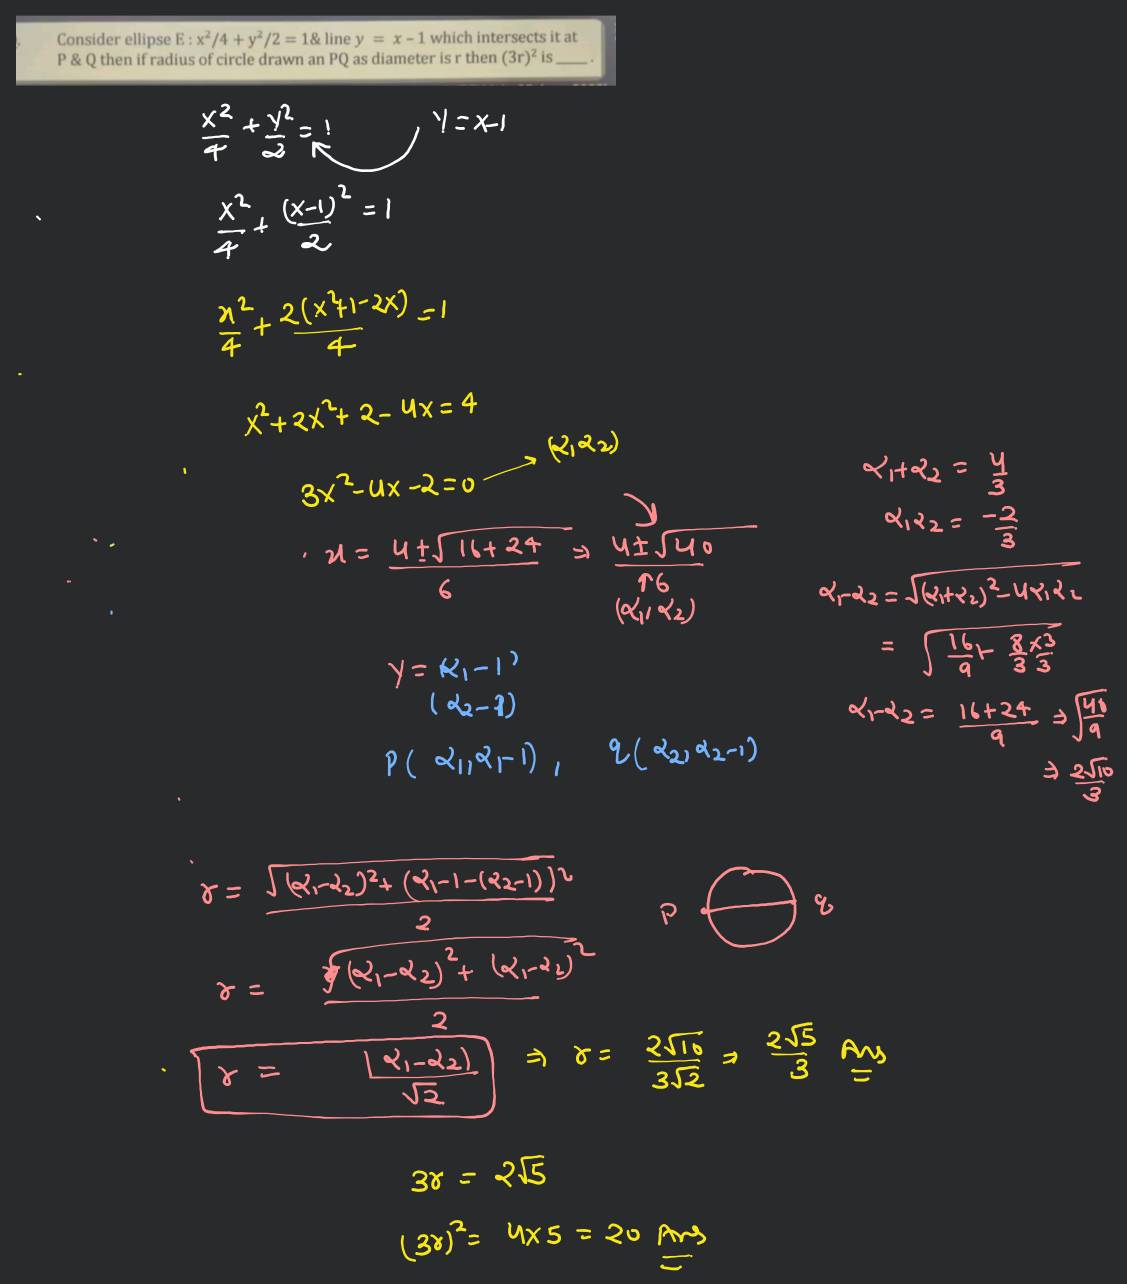 Consider ellipse E : x²/4 + y²/2 = 1& line y = x - 1 which intersects it at
P & Q then if radius of circle drawn an PQ as diameter is r then (3r)² is ____ .
x²/4 + y²/2 = 1 y = x-1
x²/4 + (x-1)²/2 = 1
x²/4 + 2(x²+1-2x)/4 = 1
x²+2x²+2-4x = 4
3x²-4x-2=0 → (α1,α2)
x = 4±√16+24/6 ⇒ 4±√40/6
(α1,α2)
α1+α2 = 4/3
α1α2 = -2/3
α1-α2 = √(α1+α2)²-4α1α2
= √16/9 + 8/3×3/3
α1-α2 = 16+24/9 ⇒ √40/9
⇒ 2√10/3
y = α1-1
(α2-1)
P( α1,α1-1), q( α2,α2-1)
r = √(α1-α2)²+(α1-1-(α2-1))²/2
P q
r = √(α1-α2)²+(α1-α2)²/2
r = |α1-α2|/√2 ⇒ r = 2√10/3√2 ⇒ 2√5/3 Ans
3r = 2√5
(3r)² = 4×5 = 20 Ans